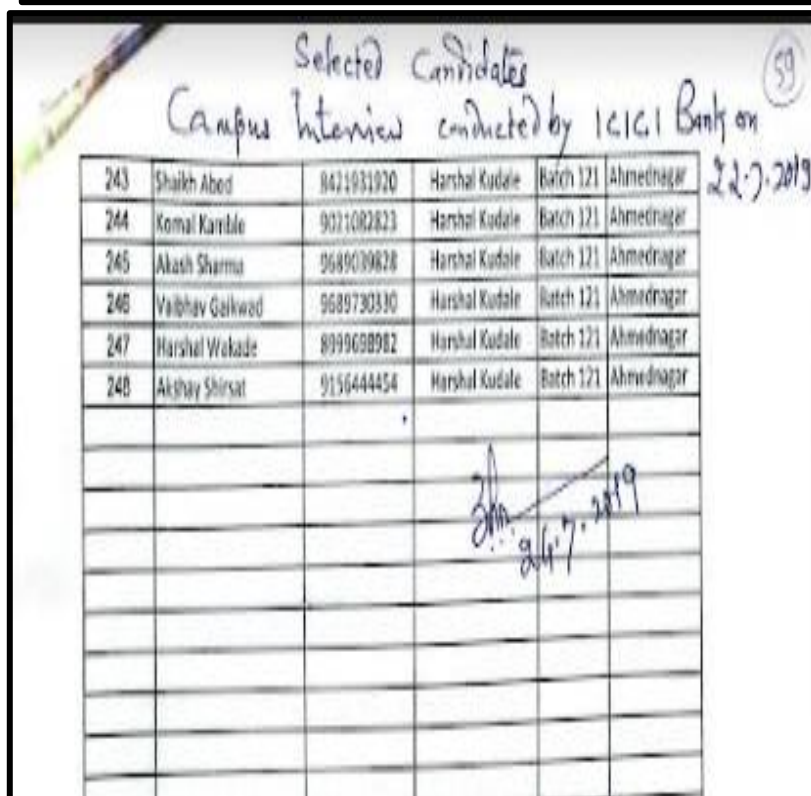 Selected Candidates
59
Campus Interview conducted by ICICI Bank on
22.7.2019
243 Shaikh Abed 8421931920 Harshal Kudale Batch 121 Ahmednagar
244 Komal Kamble 9021082823 Harshal Kudale Batch 121 Ahmednagar
245 Akash Sharma 9689039828 Harshal Kudale Batch 121 Ahmednagar
246 Vaibhav Gaikwad 9689730330 Harshal Kudale Batch 121 Ahmednagar
247 Harshal Wakade 8999698982 Harshal Kudale Batch 121 Ahmednagar
248 Akshay Shirsat 9156444454 Harshal Kudale Batch 121 Ahmednagar
24.7.2019